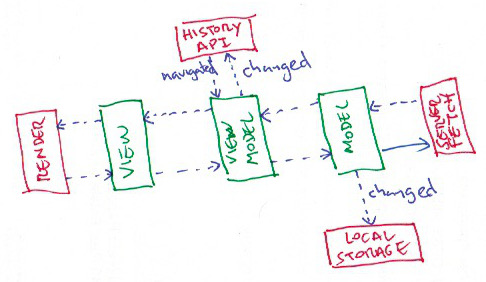 HISTORY
API
navigated
changed
RENDER
VIEW
VIEW
MODEL
MODEL
SERVER
FETCH
changed
LOCAL
STORAGE